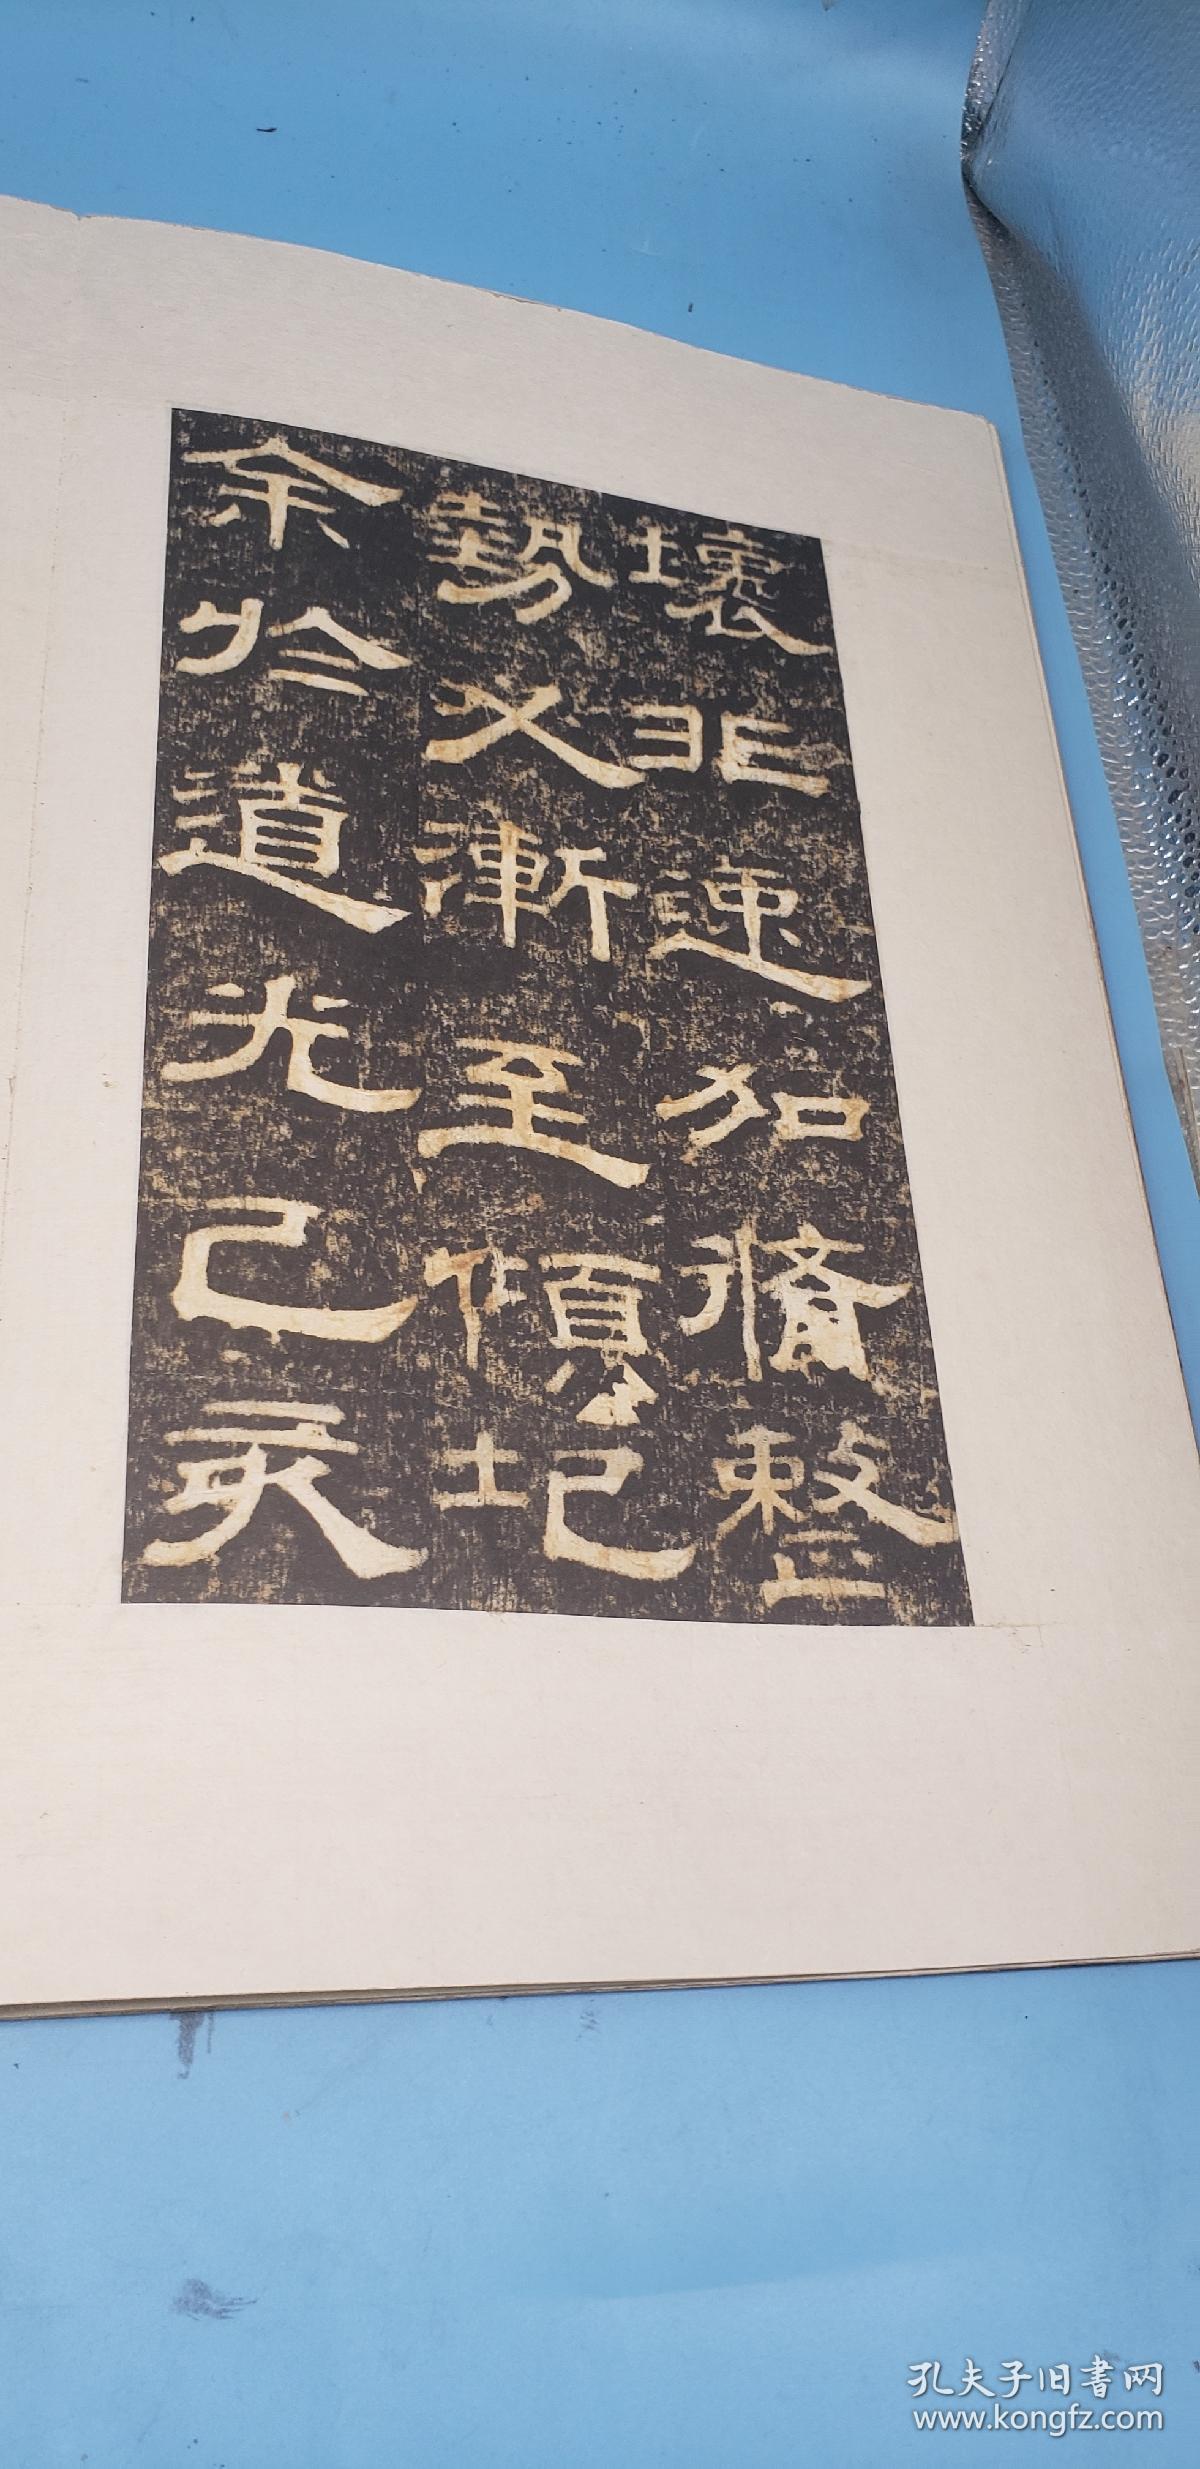 壞非速加脩整
勢必漸至傾圮
余於道光己亥
孔夫子旧書网
www.kongfz.com